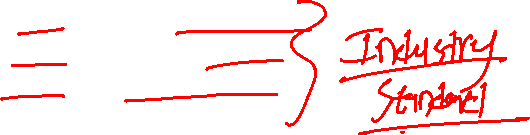 Industry
Standard